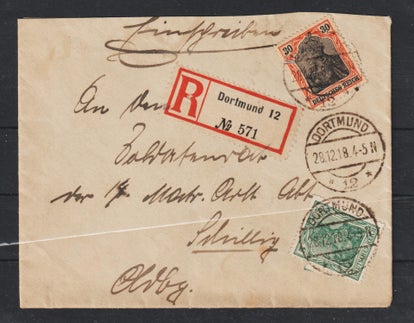 Einschreiben
30 30
DEUTSCHES REICH
R Dortmund 12
№ 571
An den
Soldatenrat
DORTMUND
28.12.18.4-5 N
* 12 *
der Matr. Artl. Abt
DORTMUND
Schillig
Oldbg.